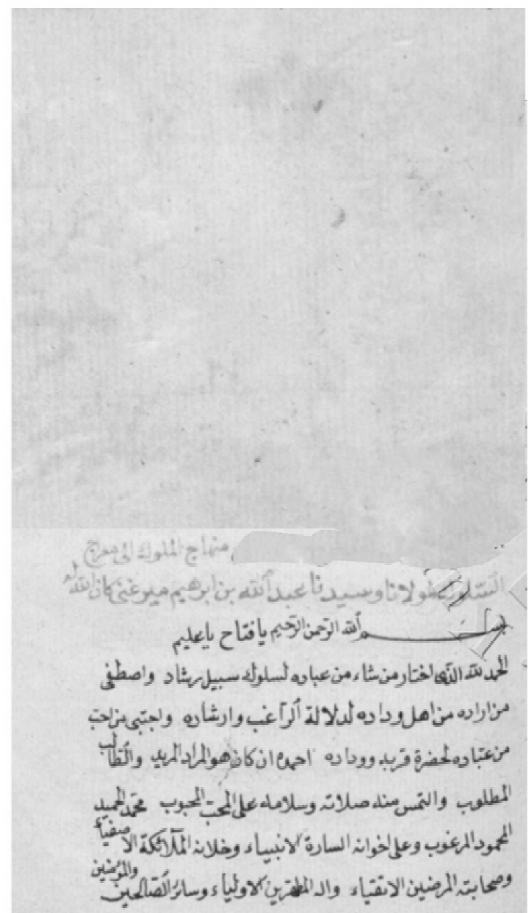 منهاج الملوك الى معرج
السلوك لمولانا وسيدنا عبد الله بن ابرهيم ميرغنى كان الله له
بسم الله الرحمن الرحيم يا فتاح يا عليم
الحمد لله الذى اختار من شاء من عباده لسلوك سبيل رشاد واصطفى
من اراده من اهل وداده لدلالة الراغب وارشاده واجتبى من احب
من عباده لحضرة قربه ووداده احمده ان كان هو المراد المريد والطالب
المطلوب والتمس منه صلاته وسلامه على المحب المحبوب محمد الحميد
المحمود المرغوب وعلى اخوانه السادة الانبياء وخلانه الملائكة الاصفياء
وصحابته المرضين الاتقياء واله المطهرين الاولياء وسائر الصالحين والمؤمنين